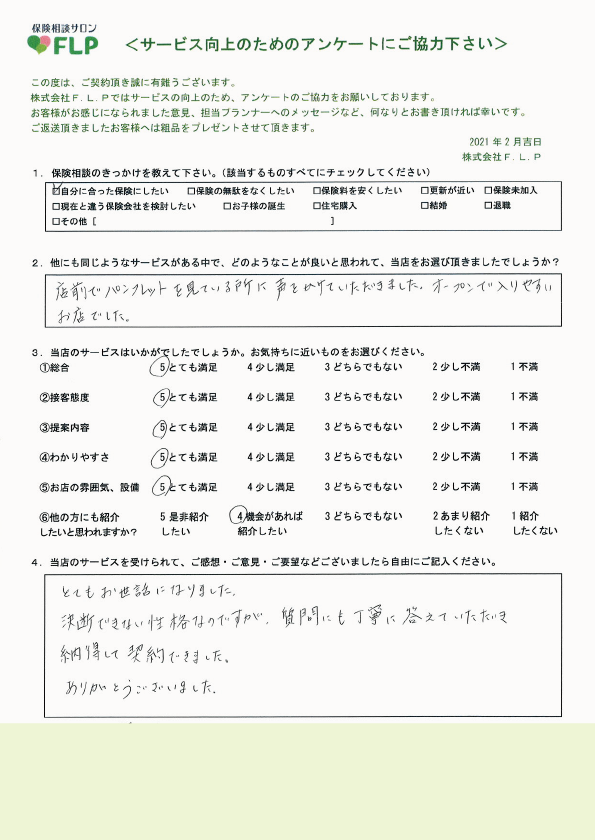 保険相談サロン
FLP
＜サービス向上のためのアンケートにご協力下さい＞
この度は、ご契約頂き誠に有難うございます。
株式会社Ｆ.Ｌ.Ｐではサービスの向上のため、アンケートのご協力をお願いしております。
お客様がお感じになられました意見、担当プランナーへのメッセージなど、何なりとお書き頂ければ幸いです。
ご返送頂きましたお客様へは粗品をプレゼントさせて頂きます。
2021年2月吉日
株式会社Ｆ.Ｌ.Ｐ
１．保険相談のきっかけを教えて下さい。（該当するものすべてにチェックしてください）
☑自分に合った保険にしたい □保険の無駄をなくしたい □保険料を安くしたい □更新が近い □保険未加入
□現在と違う保険会社を検討したい □お子様の誕生 □住宅購入 □結婚 □退職
□その他［ ］
２．他にも同じようなサービスがある中で、どのようなことが良いと思われて、当店をお選び頂きましたでしょうか？
店前でパンフレットを見ている所に声をかけていただきました。オープンで入りやすい
お店でした。
３．当店のサービスはいかがでしたでしょうか。お気持ちに近いものをお選びください。
①総合 5とても満足 4少し満足 3どちらでもない 2少し不満 1不満
②接客態度 5とても満足 4少し満足 3どちらでもない 2少し不満 1不満
③提案内容 5とても満足 4少し満足 3どちらでもない 2少し不満 1不満
④わかりやすさ 5とても満足 4少し満足 3どちらでもない 2少し不満 1不満
⑤お店の雰囲気、設備 5とても満足 4少し満足 3どちらでもない 2少し不満 1不満
⑥他の方にも紹介 5是非紹介 4機会があれば 3どちらでもない 2あまり紹介 1紹介
したいと思われますか？ したい 紹介したい したくない したくない
４．当店のサービスを受けられて、ご感想・ご意見・ご要望などございましたら自由にご記入ください。
とてもお世話になりました。
決断できない性格なのですが、質問にも丁寧に答えていただき
納得して契約できました。
ありがとうございました。